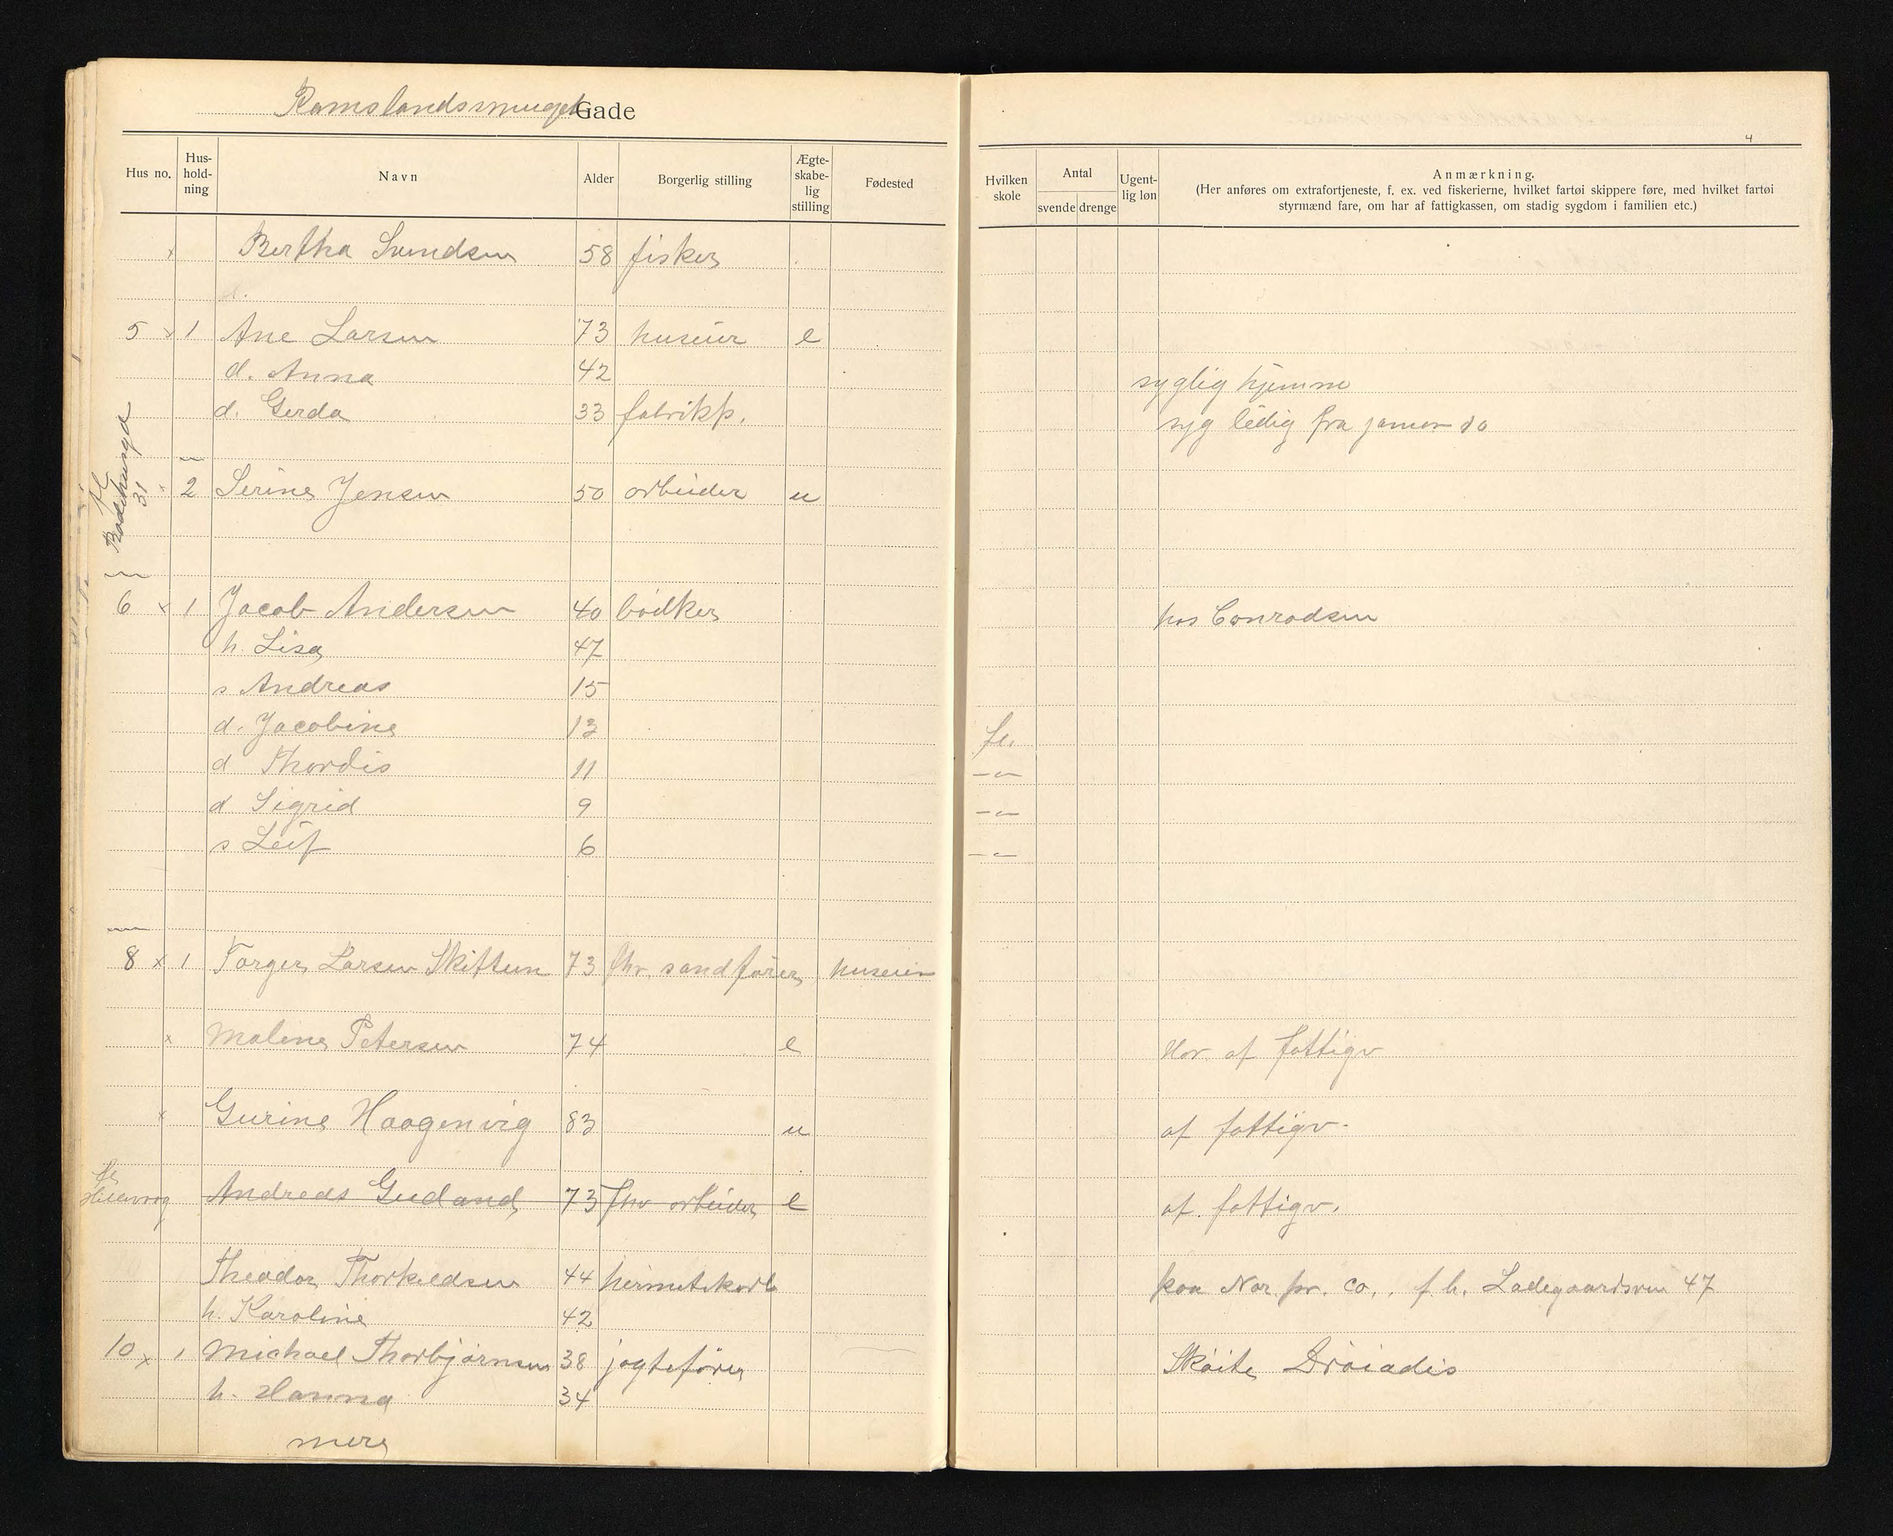 Ramslandsmuget Gade
Hus no. Hus-hold-ning Navn Alder Borgerlig stilling Ægte-skabe-lig stilling Fødested
Hvilken skole Antal svende drenge Ugent-lig løn Anmærkning.
(Her anføres om extrafortjeneste, f. ex. ved fiskerierne, hvilket fartøi skippere føre, med hvilket fartøi
styrmænd fare, om har af fattigkassen, om stadig sygdom i familien etc.)
4
x Bertha Svendsen 58 fisker
d.
5 x 1 Ane Larsen 73 huseier e
d. Anna 42 syglig hjemme
d. Gerda 33 fabrikp. syg ledig fra januar
fl 31
x 2 Serine Jensen 50 arbeider u
6 x 1 Jacob Andersen 40 bødker hos Conradsen
h. Lisa 47
s Andreas 15
d. Jacobine 13 fl.
d Thordis 11 -"-
d Sigrid 9 -"-
s Leif 6 -"-
8 x 1 Torger Larsen Skiftun 73 fhv. sandfører huseier
x Maline Petersen 74 e Har af fattigv
x Gurine Haagenvig 83 u af fattigv.
fl Hillevaag Andreas Gudand 73 fhv arbeider e af fattigv.
Theodor Thorkeldsen 44 hermetikarb paa Nor. pr. co., f. h. Ladegaardsvei 47
h. Karoline 42
10 x 1 Michael Thorbjørnsen 38 jagtefører Skøite
h. Hanna 34
mere